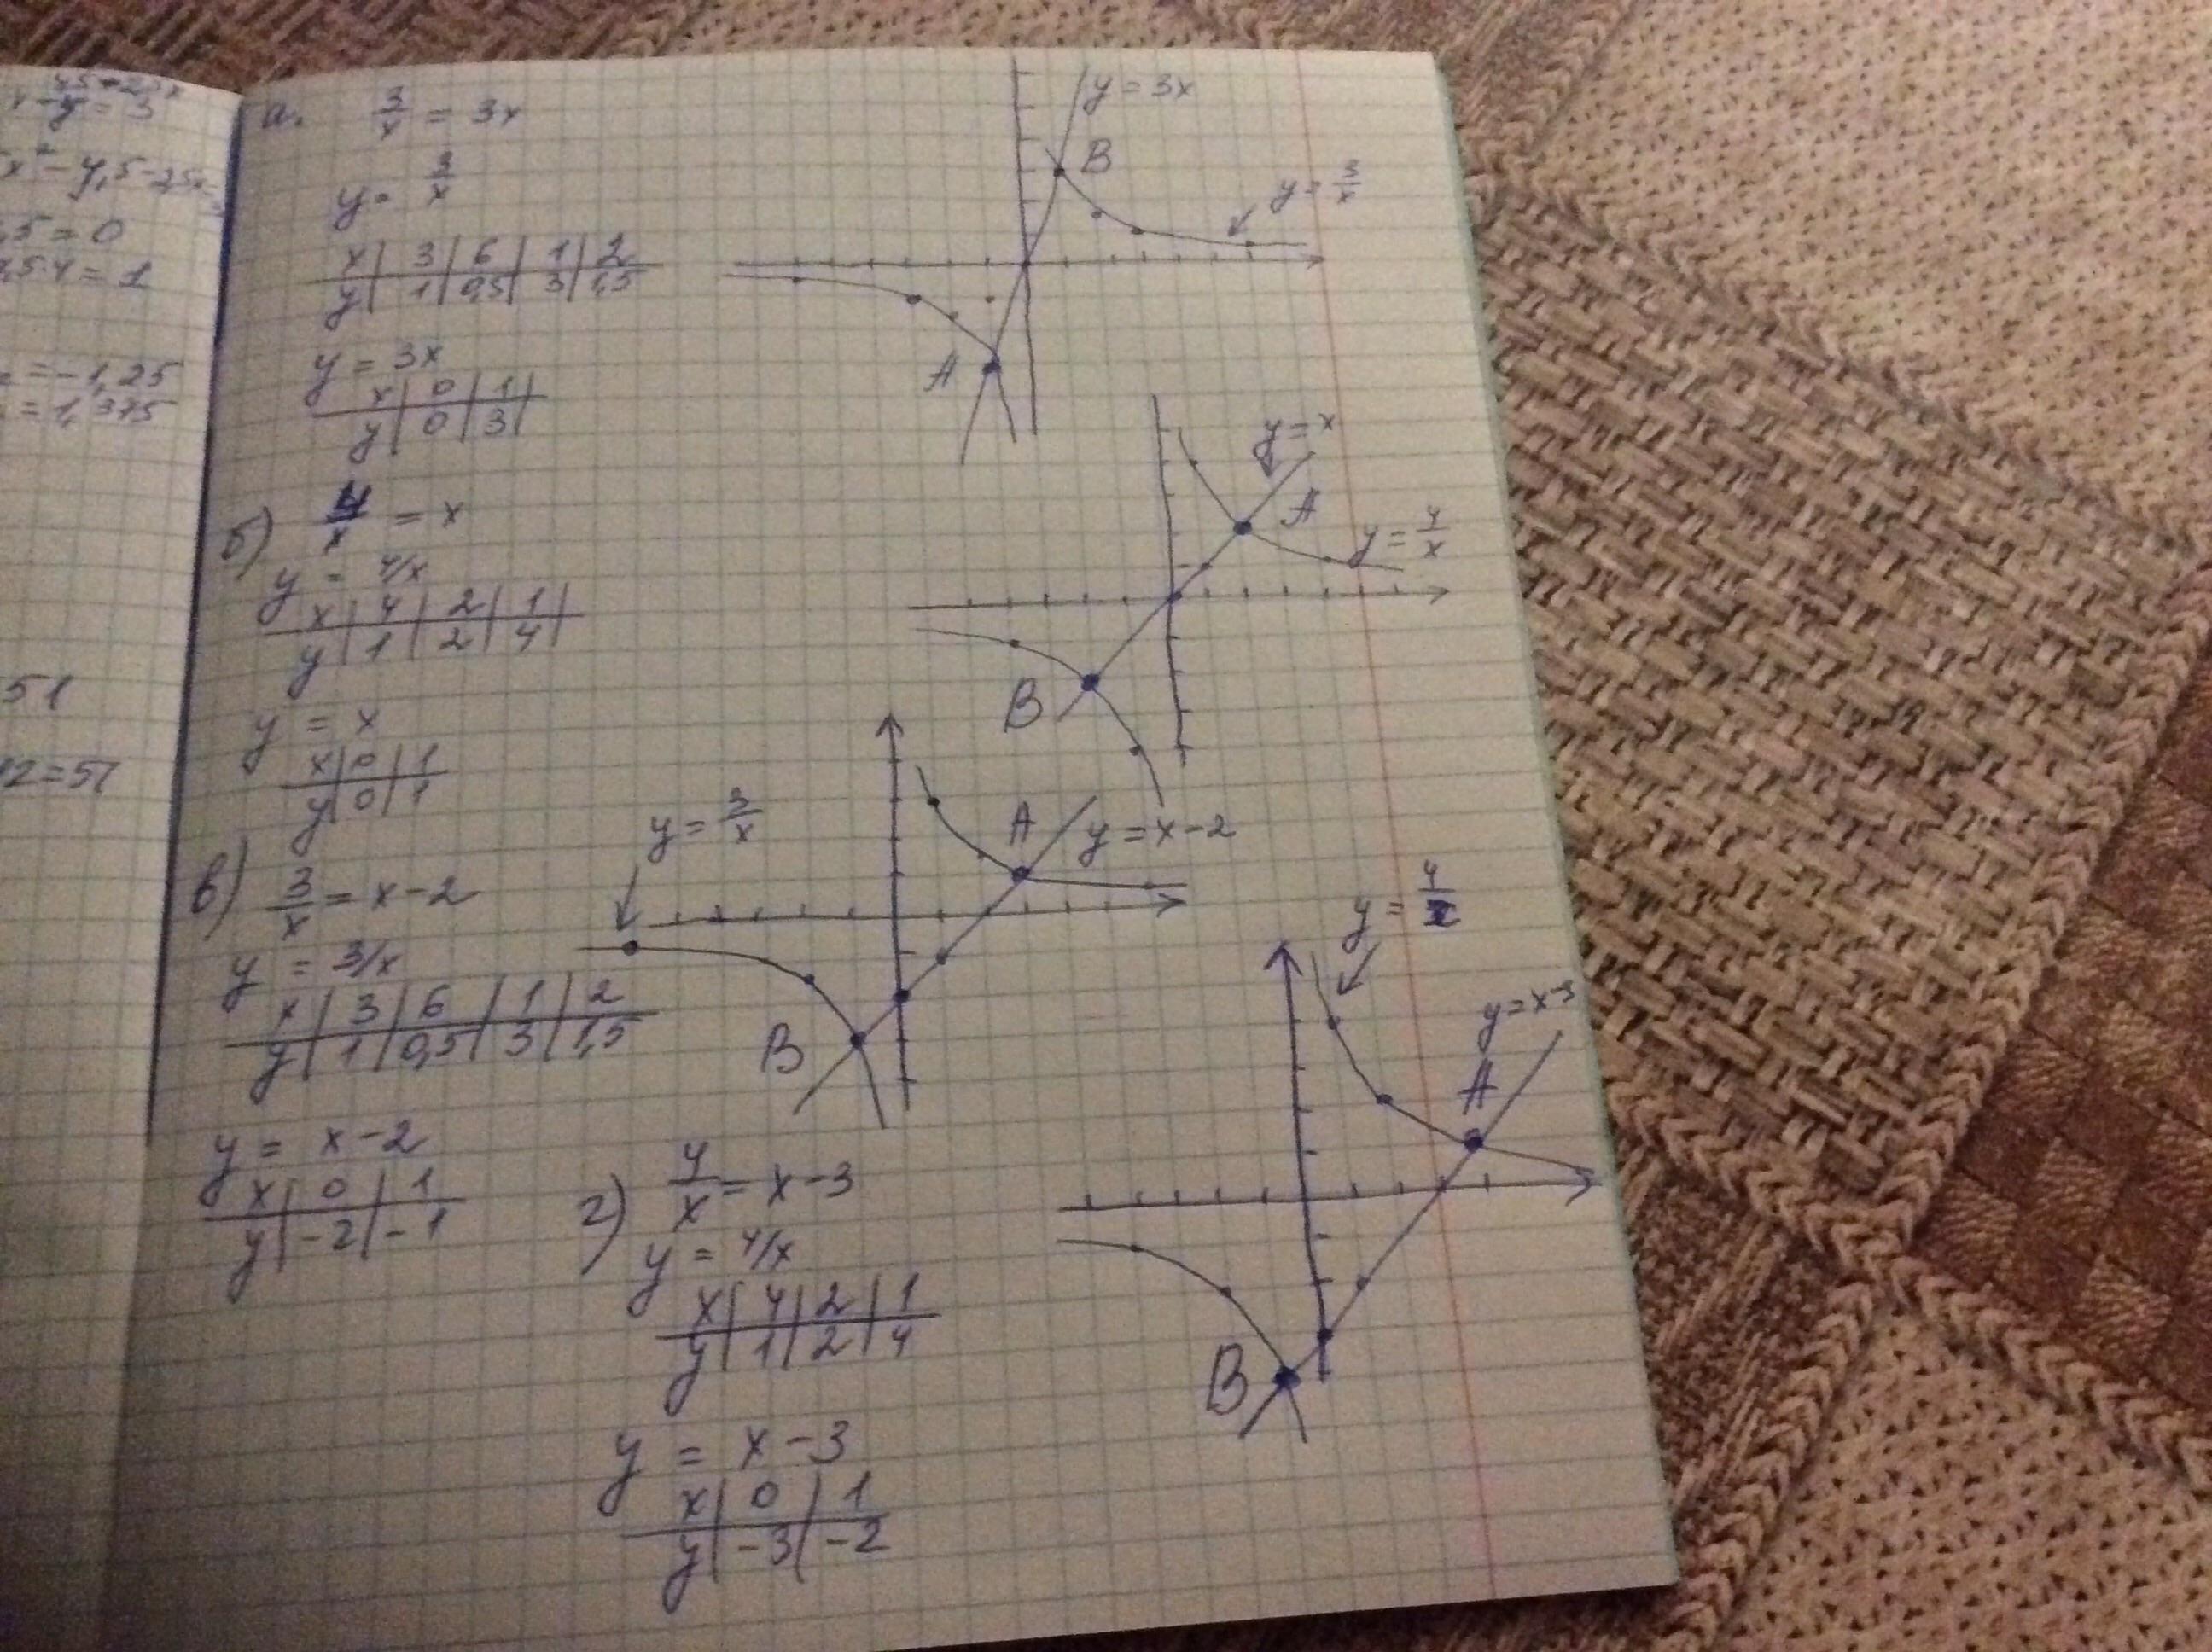 = 3
= 0
= 1
= -1,25
= 1,375
51
12=51
а. 3/x = 3x
y = 3/x
x | 3 | 6 | 1 | 2
y | 1 | 0,5 | 3 | 1,5
y = 3x
x | 0 | 1 |
y | 0 | 3 |
y = 3x
B
y = 3/x
A
б) 4/x = x
y = 4/x
x | 4 | 2 | 1 |
y | 1 | 2 | 4
y = x
x | 0 | 1
y | 0 | 1
y = x
A
y = 4/x
B
в) 3/x = x-2
y = 3/x
x | 3 | 6 | 1 | 2
y | 1 | 0,5 | 3 | 1,5
y = x-2
x | 0 | 1
y | -2 | -1
y = 3/x
A
y = x-2
B
г) 4/x = x-3
y = 4/x
x | 4 | 2 | 1
y | 1 | 2 | 4
y = x-3
x | 0 | 1
y | -3 | -2
y = 4/x
y = x-3
A
B